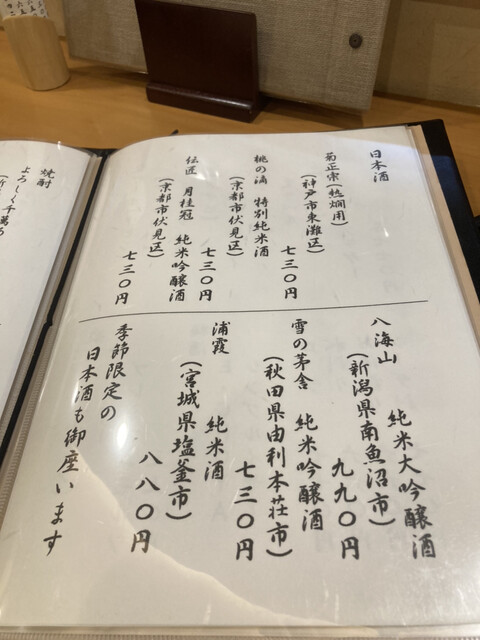 日本酒
菊正宗(熱燗用)
(神戸市東灘区)
七三〇円
桃の滴 特別純米酒
(京都市伏見区)
七三〇円
伝匠 月桂冠 純米吟醸酒
(京都市伏見区)
七三〇円
八海山 純米大吟醸酒
(新潟県南魚沼市)
九九〇円
雪の茅舎 純米吟醸酒
(秋田県由利本荘市)
七三〇円
浦霞 純米酒
(宮城県塩釜市)
八八〇円
季節限定の
日本酒も御座います
焼酎
よろしく千萬